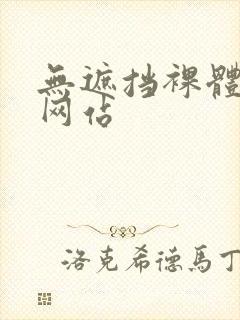 無遮挡裸體
网佔
洛克希德馬丁